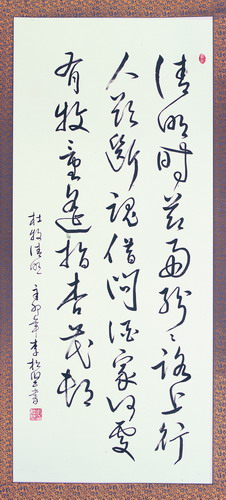 清明时节雨纷〻路上行
人欲斷魂借问酒家何處
有牧童遥指杏花村
杜牧清明 辛卯年李松书